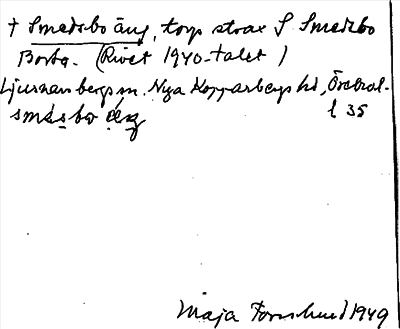 † Smedsbo äng, torp strax S Smedsbo
Borta. (Rivet 1940-talet)
Ljusnarsbergs sn. Nya Kopparbergs hd, Örebro l.
smɛ́sbo ɛŋ l 35
Maja Forslund 1949